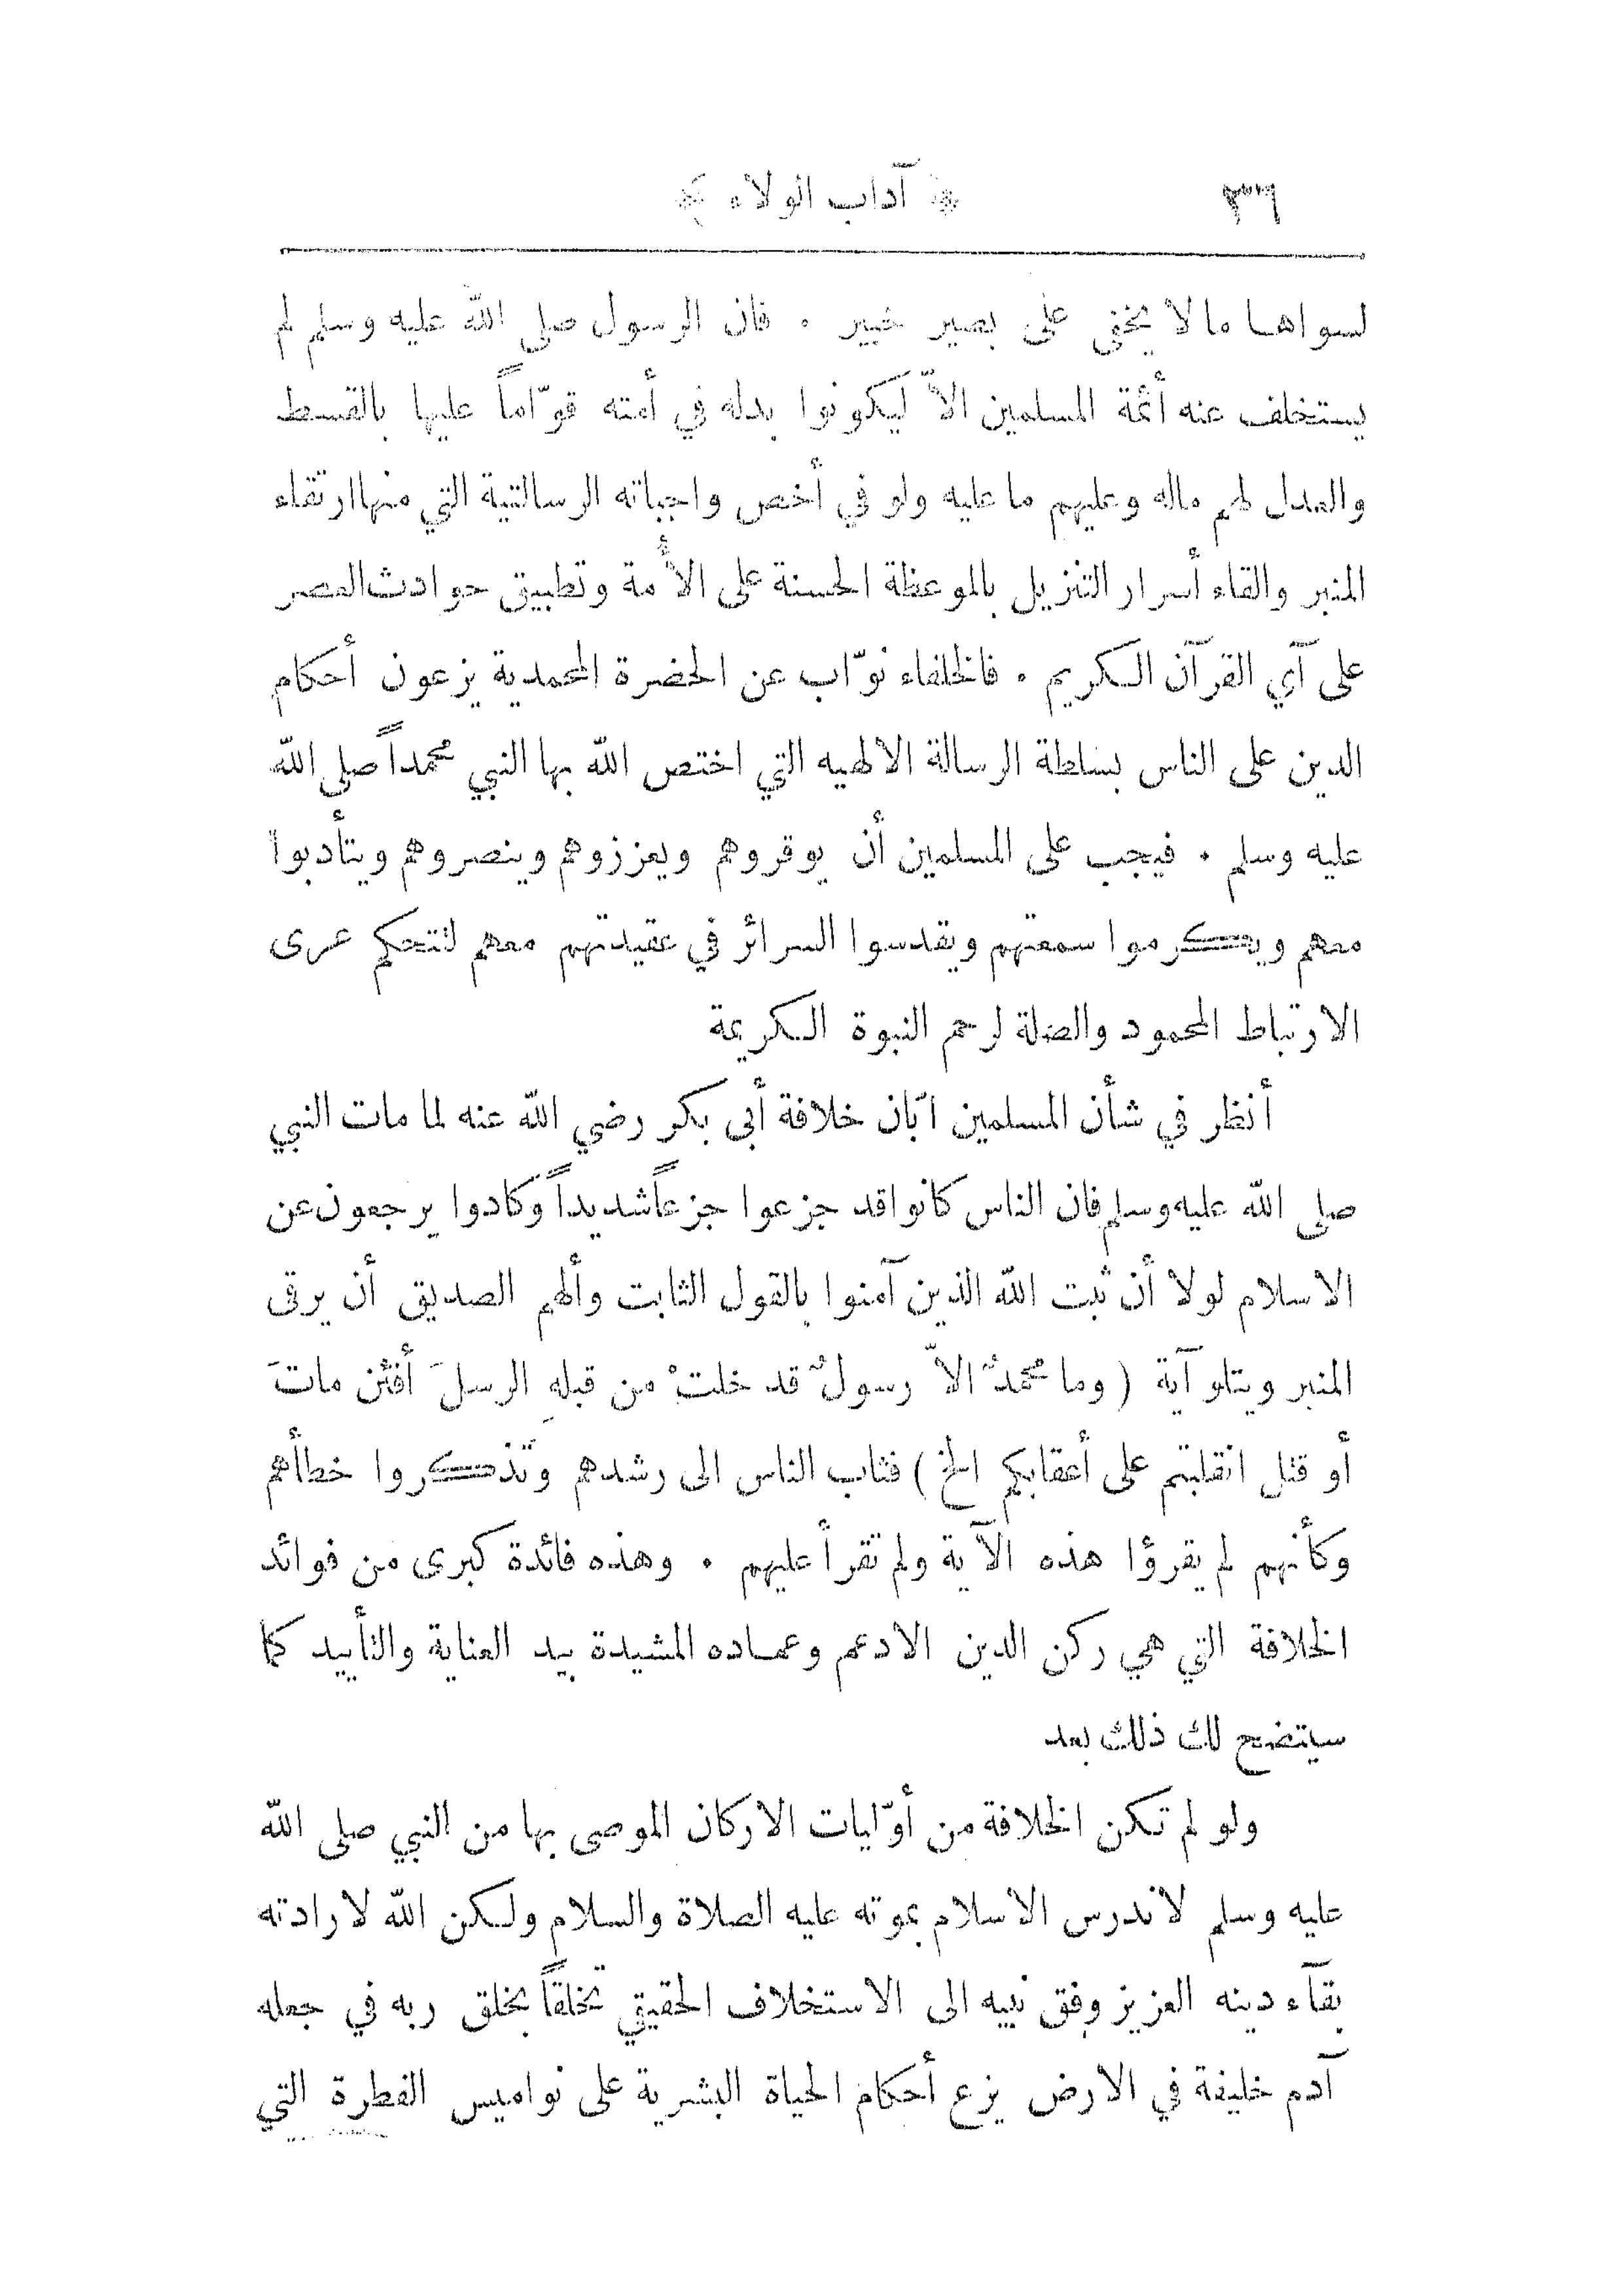 ٣٦ ﴿ آداب الولاء ﴾
لسواها ما لا يخفى على بصير خبير . فان الرسول صلى الله عليه وسلم لم
يستخلف عنه أئمة المسلمين الاّ ليكونوا بدله في أمته قوّاماً عليها بالقسط
والعدل لهم ماله وعليهم ما عليه ولو في أخص واجباته الرسالتية التي منها ارتقاء
المنبر والقاء أسرار التنزيل بالموعظة الحسنة على الأمة وتطبيق حوادث العصر
على آي القرآن الكريم . فالخلفاء نوّاب عن الحضرة المحمدية يزعون أحكام
الدين على الناس بسلطة الرسالة الالهيه التي اختص الله بها النبي محمداً صلى الله
عليه وسلم . فيجب على المسلمين أن يوقروهم ويعززوهم وينصروهم ويتأدبوا
معهم ويكرموا سمعتهم ويقدسوا السرائر في عقيدتهم معهم لتتحكم عرى
الارتباط المحمود والصلة لرحم النبوة الكريمة
أنظر في شأن المسلمين ابّان خلافة أبى بكر رضي الله عنه لما مات النبي
صلى الله عليه وسلم فان الناس كانوا قد جزعوا جزعاً شديداً وكادوا يرجعون عن
الاسلام لولا أن ثبت الله الذين آمنوا بالقول الثابت وألهم الصديق أن يرقى
المنبر ويتلو آية ( وما محمدٌ الاّ رسولٌ قد خلتْ من قبلهِ الرسلَ أفئن ماتَ
أو قتل انقلبتم على أعقابكم الخ ) فثاب الناس الى رشدهم وتذكروا خطأهم
وكأنهم لم يقرؤا هذه الآية ولم تقرأ عليهم . وهذه فائدة كبرى من فوائد
الخلافة التي هي ركن الدين الادعم وعماده المشيدة بيد العناية والتأييد كما
سيتضح لك ذلك بعد
ولو لم تكن الخلافة من أوّليات الاركان الموصى بها من النبي صلى الله
عليه وسلم لاندرس الاسلام بموته عليه الصلاة والسلام ولكن الله لارادته
بقآء دينه العزيز وفق نبيه الى الاستخلاف الحقيقي تخلقاً بخلق ربه في جعله
آدم خليفة في الارض يزع أحكام الحياة البشرية على نواميس الفطرة التي